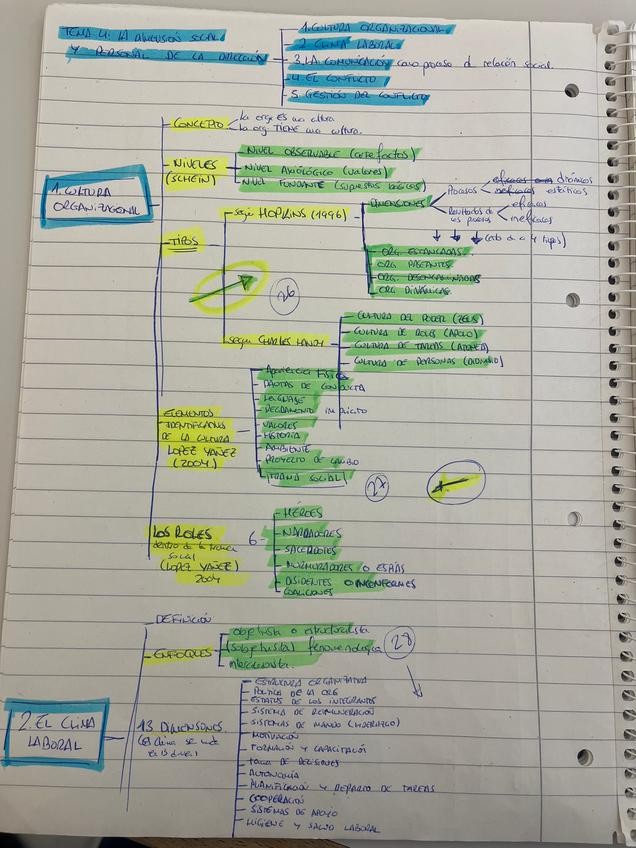 TEMA 4: LA DIMENSIÓN SOCIAL
Y PERSONAL DE LA DIRECCIÓN
1. CULTURA ORGANIZACIONAL
2. CLIMA LABORAL
3. LA COMUNICACIÓN como proceso d relación social.
4. EL CONFLICTO
5. GESTIÓN DEL CONFLICTO
1. CULTURA
ORGANIZACIONAL
CONCEPTO
la org ES una cultura
la org TIENE una cultura.
NIVELES
(SCHEIN)
NIVEL OBSERVABLE (artefactos)
NIVEL AXIOLÓGICO (valores)
NIVEL FUNDANTE (supuestos básicos)
TIPOS
según HOPKINS (1996)
DIMENSIONES
Procesos
eficaces dinámicos
ineficaces estáticos
Resultados de
los procesos
eficaces
ineficaces
(esto da a 4 tipos)
ORG. ESTANCADAS
ORG. PASEANTES
ORG. DESENCAMINADAS
ORG. DINÁMICAS
26
según CHARLES HANDY
CULTURA DEL PODER (ZEUS)
CULTURA DE ROLES (APOLO)
CULTURA DE TAREAS (ATENEA)
CULTURA DE PERSONAS (DIONISIO)
ELEMENTOS
IDENTIFICADORES
DE LA CULTURA
LOPEZ YAÑEZ
(2004)
Apariencia Física
PAUTAS DE CONDUCTA
LENGUAJE
REGLAMENTO IMPLÍCITO
VALORES
HISTORIA
AMBIENTE
PROYECTO DE CAMBIO
TRAMA SOCIAL
27
LOS ROLES
dentro de la trama
social
(LOPEZ YAÑEZ)
2004
6
HÉROES
NARRADORES
SACERDOTES
MURMURADORES O ESPÍAS
DISIDENTES O INCONFORMES
COALICIONES
2. EL CLIMA
LABORAL
DEFINICIÓN
ENFOQUES
objetivista o estructuralista
(subjetivista) fenomenológica
interaccionista.
28
13 DIMENSIONES
(el clima se mide
ESTRUCTURA ORGANIZATIVA
POLÍTICA DE LA ORG
ESTATUS DE LOS INTEGRANTES
SISTEMA DE REMUNERACIÓN
SISTEMAS DE MANDO (LIDERAZGO)
MOTIVACIÓN
FORMACIÓN Y CAPACITACIÓN
TOMA DE DECISIONES
AUTONOMÍA
PLANIFICACIÓN Y REPARTO DE TAREAS
COOPERACIÓN
SISTEMAS DE APOYO
HIGIENE Y SALUD LABORAL